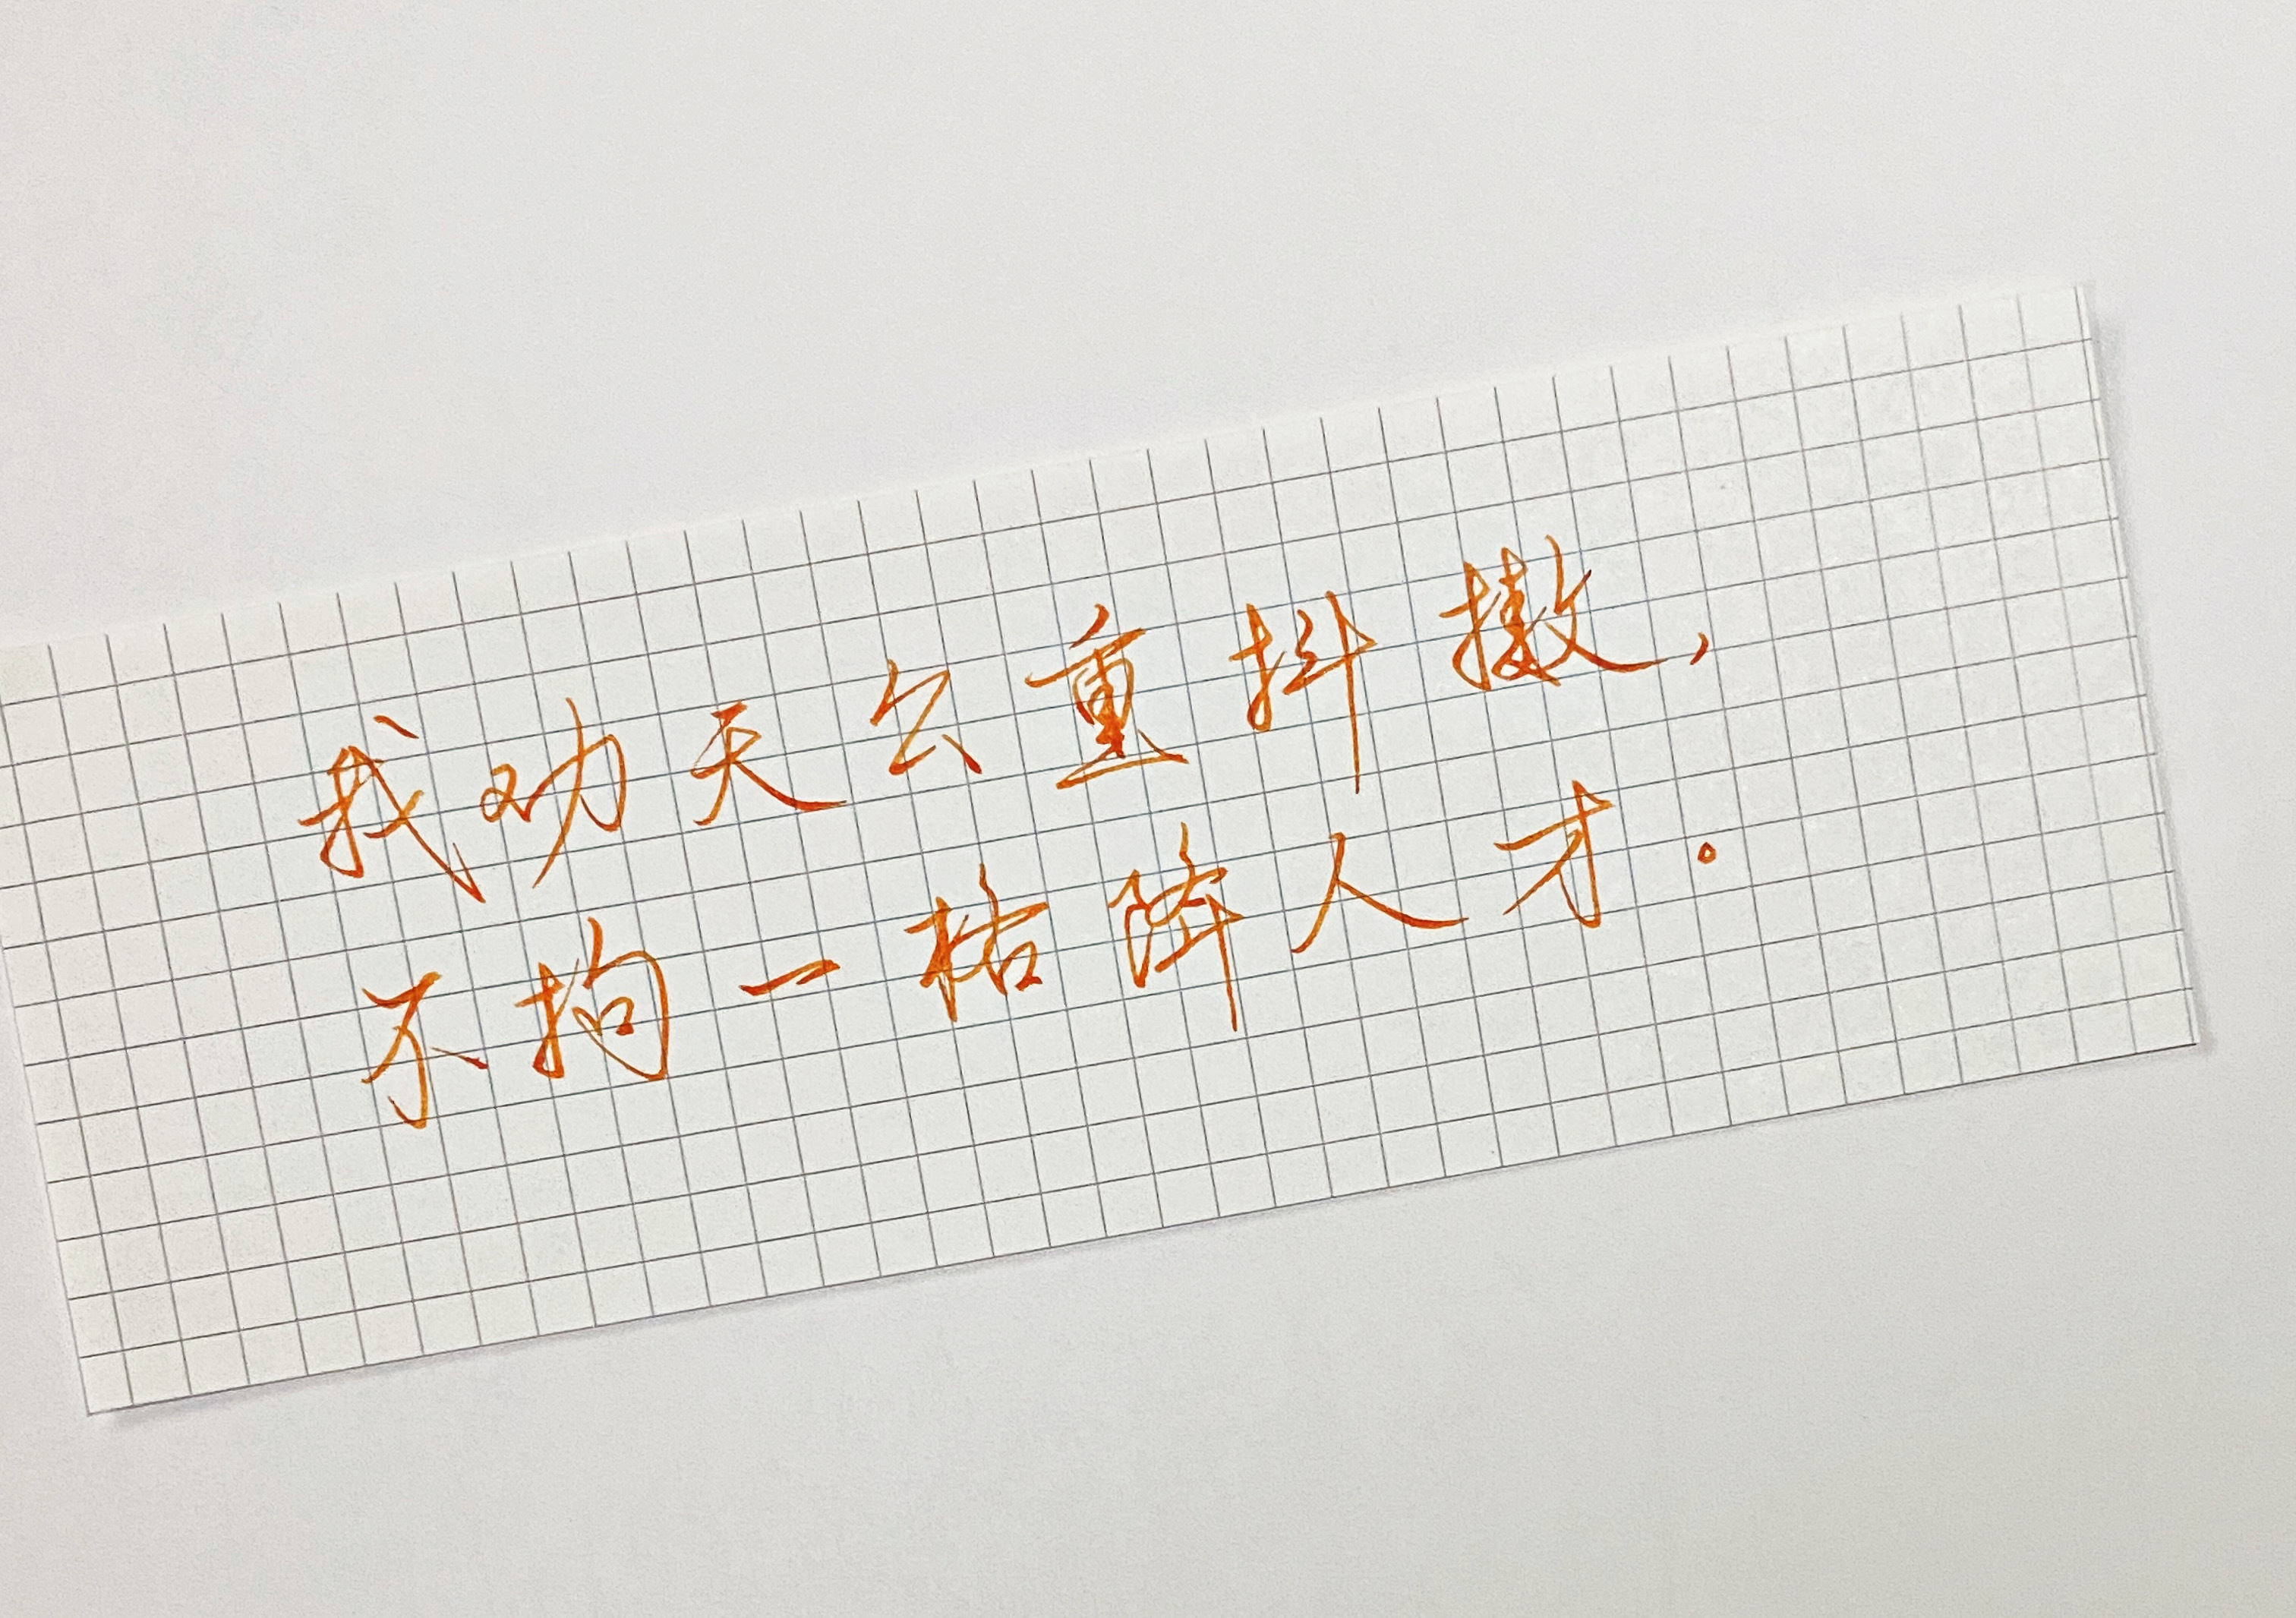 我劝天公重抖擞，
不拘一格降人才。